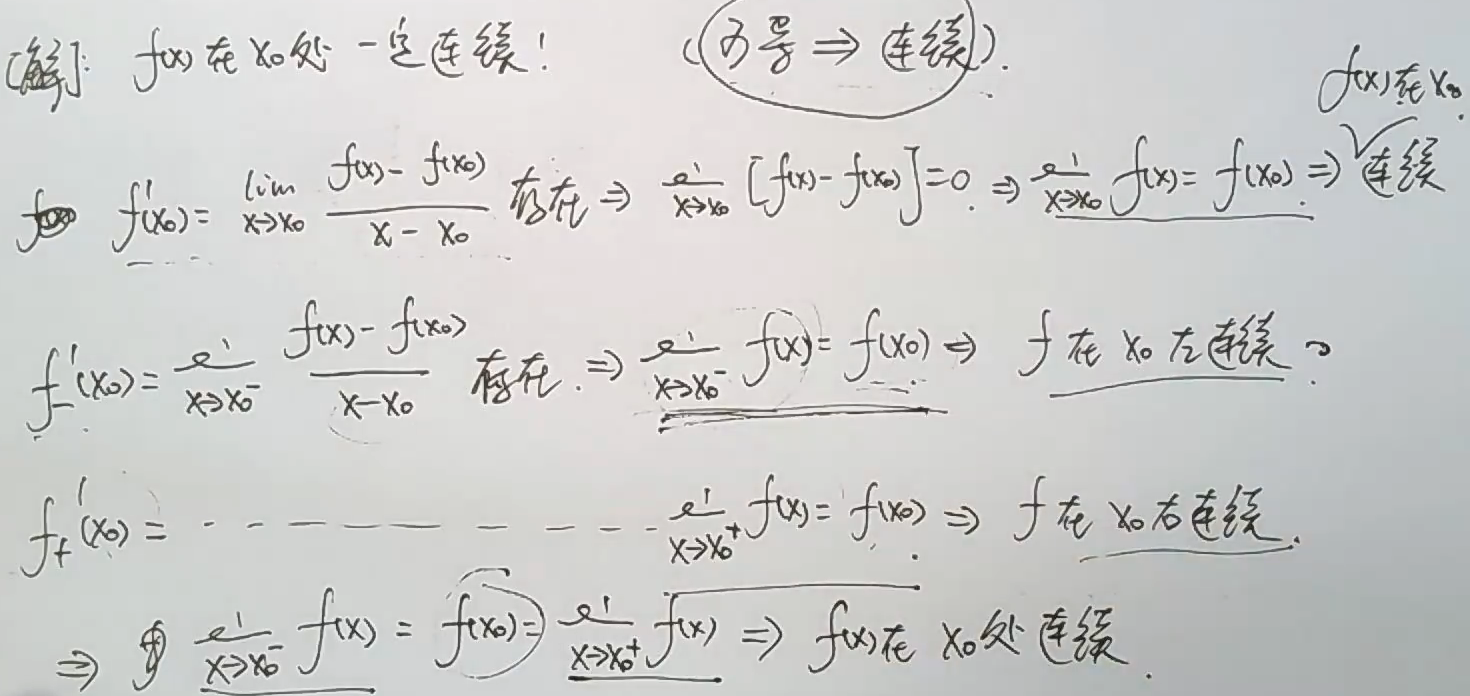 [解]: f(x) 在 x₀ 处 一定连续! (可导 ⇒ 连续).
f'(x₀) = lim_{x→x₀} (f(x) - f(x₀))/(x - x₀) 存在 ⇒ lim_{x→x₀} [f(x) - f(x₀)] = 0. ⇒ lim_{x→x₀} f(x) = f(x₀). ⇒ f(x) 在 x₀ 连续
f'₋(x₀) = lim_{x→x₀⁻} (f(x) - f(x₀))/(x - x₀) 存在. ⇒ lim_{x→x₀⁻} f(x) = f(x₀) ⇒ f 在 x₀ 左连续。
f'₊(x₀) = - - - - - - - - - lim_{x→x₀⁺} f(x) = f(x₀) ⇒ f 在 x₀ 右连续.
⇒ lim_{x→x₀⁻} f(x) = f(x₀) = lim_{x→x₀⁺} f(x) ⇒ f(x) 在 x₀ 处 连续.